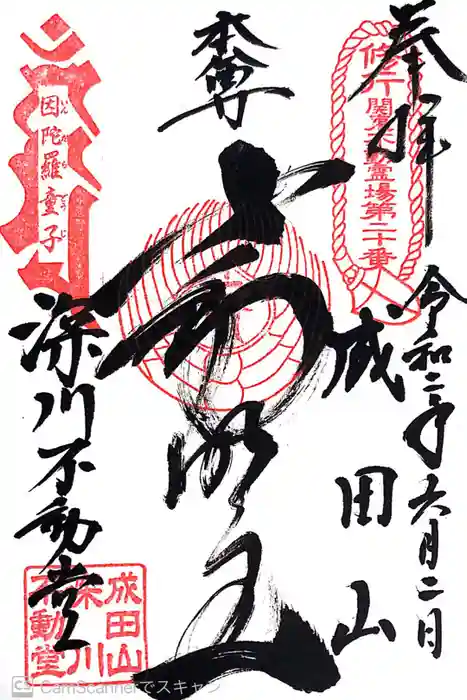 奉拝
修行 関東不動霊場第二十番
令和二年六月二日
成田山
本尊
不動明王
因陀羅童子
深川不動堂
成田山
深川
不動堂
CS CamScannerでスキャン